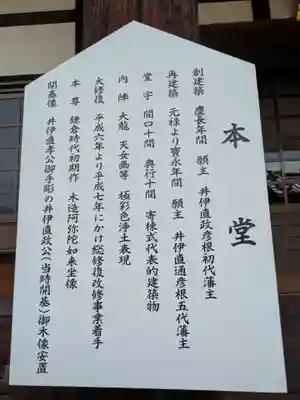 本堂
創建築 慶長年間 願主 井伊直政彦根初代藩主
再建築 元禄より寳永年間 願主 井伊直通彦根五代藩主
堂宇 間口十間 奥行十間 寄棟式代表的建築物
内陣 大龍 天女画等 極彩色浄土表現
大修復 平成六年より平成七年にかけ総修復改修事業着手
本尊 鎌倉時代初期作 木造阿弥陀如来坐像
開基像 井伊直孝公御手彫の井伊直政公(当時開基)御木像安置